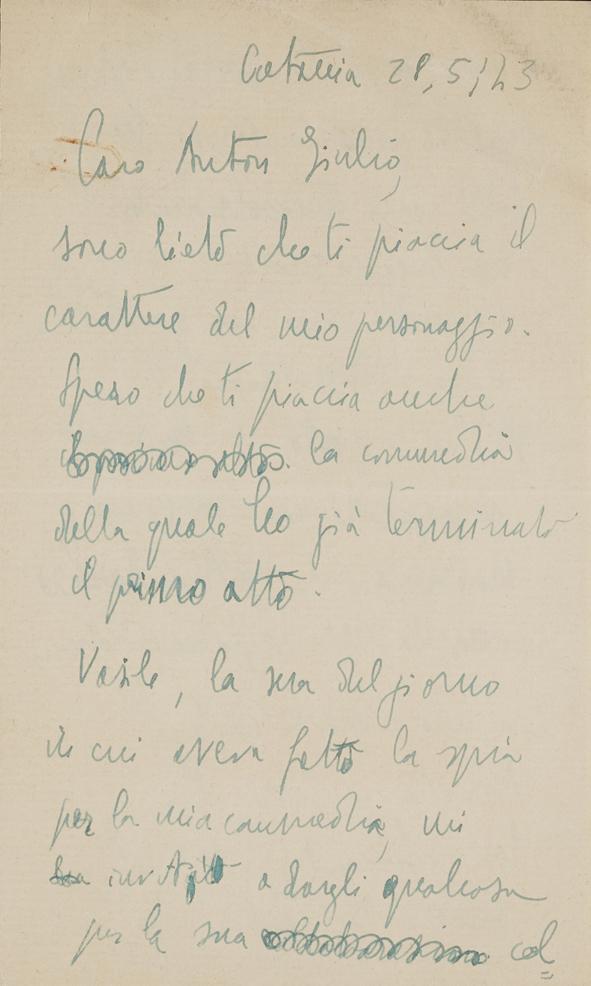 Catania 28, 5, 43
Caro Anton Giulio,
sono lieto che ti piaccia il
carattere del mio personaggio.
Spero che ti piaccia anche
la commedia
della quale ho già terminato
il primo atto.
Vasile, la sera del giorno
in cui aveva fatto la spia
per la mia commedia, mi
invitò a dargli qualcosa
per la sua col=